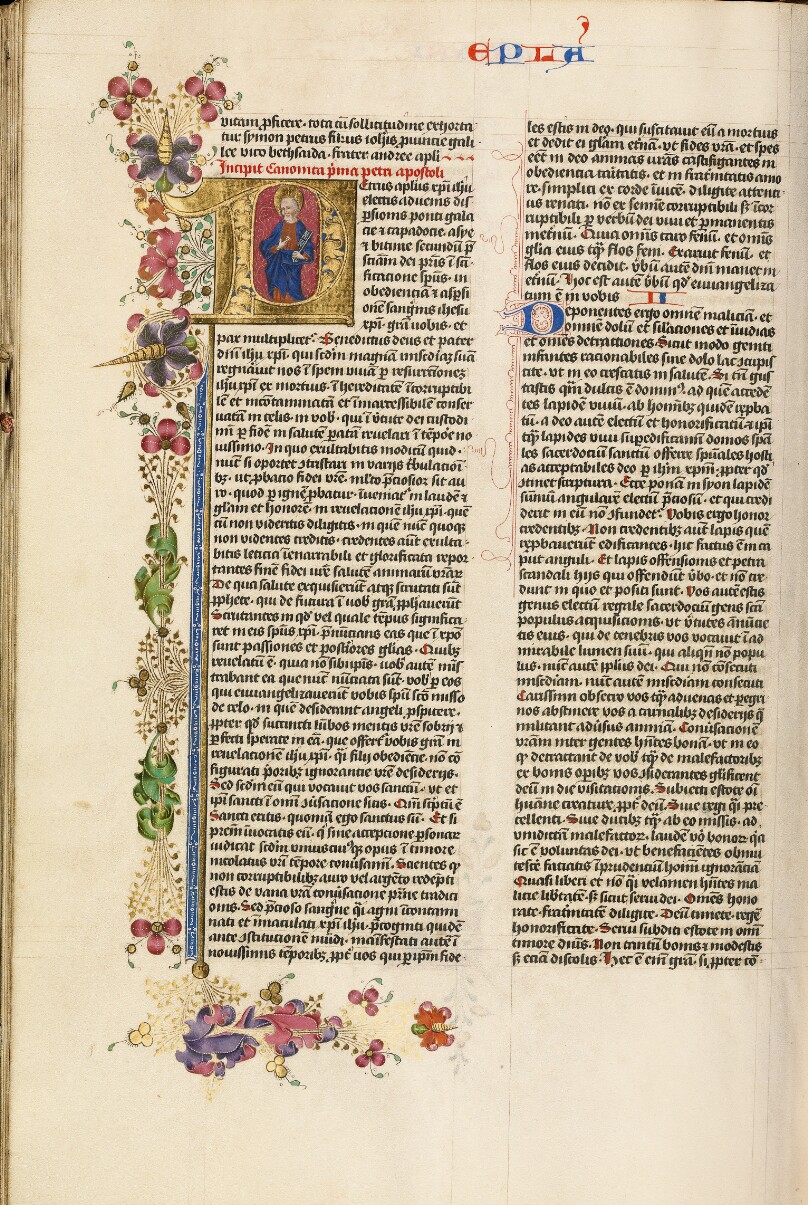 EPLA
vitam ꝓficere· tota cū sollicitudine exhorta
tur symon petrus filius iohīs ꝓuincie gali
lee vico bethsaida· frater andree apli
Incipit Canonica p̄ma petri apostoli
Petrus aplus xpī ihū
electis aduenis dis
ꝑsionis ponti gala
cie ⁊ capadocie· asye
⁊ bitinie secundū p̄
sciam dei pr̄is ī sc̄i
ficatione sp̄us· in
obedientiā ⁊ asꝑsi
onē sanguis ihesu
xpī· grā uobis· et
pax multiplicet᷑· Benedictus deus et pater
dn̄i ihū xpī· qui scd̄m magnā miscdiaȝ suā
regn̄auit nos ī spem viuā ꝑ resurrexionez
ihū xpī ex mortuis· ī hereditatē īcorruptibi
lē et incōtaminatā et īmarcessibilē conser
uatā in celis· in vob· qui ī v̄tute dei custodi
mī ꝑ fidē in salutē ꝑatā reuelari ī tēpore no
uissimo· In quo exultabitis modicū quid·
nūc si oportet ꝯtristari in varijs tbulatiōi
bȝ· ut ꝓbatio fidei vr̄e· ml̄to p̄ciosior sit au
ro· quod ꝑ ignē ꝓbatur· īueniat᷑ in laudē ⁊
glām et honorē· in reuelacionē ihū xpī· quē
cū non videritis diligitis· in quē nūc quoqȝ
non videntes creditis· credentes aūt exulta
bitis leticia īenarrabili et glorificata repor
tantes finē fidei vr̄e salutē animarū vr̄aꝝ
De qua salute exquisierūt atqȝ scrutati sūt
ꝓphete· qui de futura ī uob grā ꝓphauerūt
Scrutantes in qd̄ vel quale tēpus significa
ret in eis sp̄us xpī· p̄nūtians eas que ī xpō
sunt passiones et posteriores glias· Quibȝ
reuelatū ē· quia nō sibipis· uob autē mīs
trabant ea que nūc nūciata sūt· vob ꝑ eos
qui euuangelizauerūt vobis sp̄u scō misso
de celo· in quē desiderant angeli ꝓspicere·
ꝓpter qd̄ succincti lūbos mentis vr̄e sobrij ⁊
ꝑfecti sperate in eā· que offert᷑ vobis grā in
reuelacionē ihū xpī· qi filij obediētie· nō cō
figurati p̄oribȝ ignorantie vr̄e desiderijs·
Sed scd̄m eū qui vocauit vos sanctū· vt et
ip̄i sancti ī omī ꝯuersatione sitis· Qm̄ sc̄ptū ē
Sancti eritis· quoniā ego sanctus sū· Et si
pr̄em inuocatis eū· q̄ sine acceptione ꝑsonaꝝ
iudicat scd̄m vniuscuiꝰqȝ opus ī timore
incolatus vr̄i tēpore conuersamī· Scientes ꝙ
non corruptibilibȝ auro vel argēto redēpti
estis de vana vr̄a conuersatione pr̄ine tradici
onis· Sed p̄cioso sanguīe q̄si agni īcontami
nati et inmaculati xpī ihū· p̄cogniti quidē
ante ꝯstitucionē mūdi· maīfestati autē ī
nouissimis tēporibȝ· ꝓpt̄ uos qui ꝑ ip̄m fide
les estis in deo· qui suscitauit eū a mortuis
et dedit ei glām et̄nā· vt fides vr̄a· et spes
eēt in deo animas vr̄as castificantes in
obediencia caritatis· et in frat̄nitatis amo
re· simplici ex corde īuicē· diligite attenti
us renati· nō ex semīe corruptibili sȝ īcor
ruptibili ꝑ verbū dei viui et ꝑmanentis
inet̄nū· Quia omīs caro fenū· et omīs
glia eius tāqȝ flos feni· Exaruit fenū· et
flos eius decidit· v̄bū autē dn̄i manet in
et̄nū· Hoc est autē v̄bū qd̄ euuangeliza
tum ē in vobis II
Deponentes ergo omnē maliciā· et
omnē dolū et silaciones et īuidias
et omēs detractiones· Sicut modo geniti
infantes racionabiles sine dolo lac ꝯcupis
cite· vt in eo crescatis in salutē· Si tn̄ gus
tastis qm̄ dulcis ē dominꝰ· ad quē acceden̄
tes lapidē viuū· ab homībȝ quidē reꝓba
tū· a deo autē electū et honorificatū ⁊ ip̄i
tāqȝ lapides viui suꝑedificamī domos sp̄ua
les sacerdociū sanctū offerre sp̄uales hosti
as acceptabiles deo ꝑ ihm̄ xpm̄· ꝓpter qd̄
ꝯtinet scriptura· Ecce ponā in syon lapidē
sūmū angularē electū p̄ciosū· et qui credi
derit in eū nō ꝯfundet᷑· Vobis ergo honor
credentibȝ· Non credentibȝ aūt lapis quē
reꝓbauerūt edificantes· hic factus ē in ca
put anguli· Et lapis offensionis et petra
scandali hijs qui offendūt v̄bo· et nō cre
dunt in quo et positi sunt· Vos autē estis
genus electū regale sacerdociū gens scā
populus acquisicionis· ut v̄tutes ānūcie
tis eius· qui de tenebris vos vocauit ī ad
mirabile lumen suū· qui aliqn̄ nō popu
lus· nūc autē pplus dei· Qui nō cōsecuti
miscdiam· nūc autē miscdiam consecuti
Carissimi obsecro vos tāqȝ aduenas et ꝑegri
nos abstinere vos a carnalibȝ desiderijs q̄
militant adūsus animā· Conūsacionē
vr̄am inter gentes hn̄tes bonā· vt in eo
ꝙ detractant de vob tāqȝ de malefactoribȝ
ex bonis opibȝ vos ꝯsiderantes glificent
deū in die visitationis· Subiecti estote oī
huāne creature ꝓpt̄ deū· Siue regi q̄si pre
cellenti· Siue ducibȝ tāqȝ ab eo missis· ad
vindictā malefactoꝝ· laudē vō bonoꝝ qa
sic ē voluntas dei· vt benefacientes obmu
tescē faciatis īprudenciū hoīm ignoranciā
Quasi liberi et nō q̄si velamen hn̄tes ma
licie libtatē· sȝ sicut serui dei· Omēs hono
rate· frat̄nitatē diligite· Deū timete· regē
honorificate· Serui subditi estote in omī
timore dn̄is· Non tantū bonis ⁊ modestis
sȝ eciā discolis· Hec ē em̄ grā· si ꝓpter cō